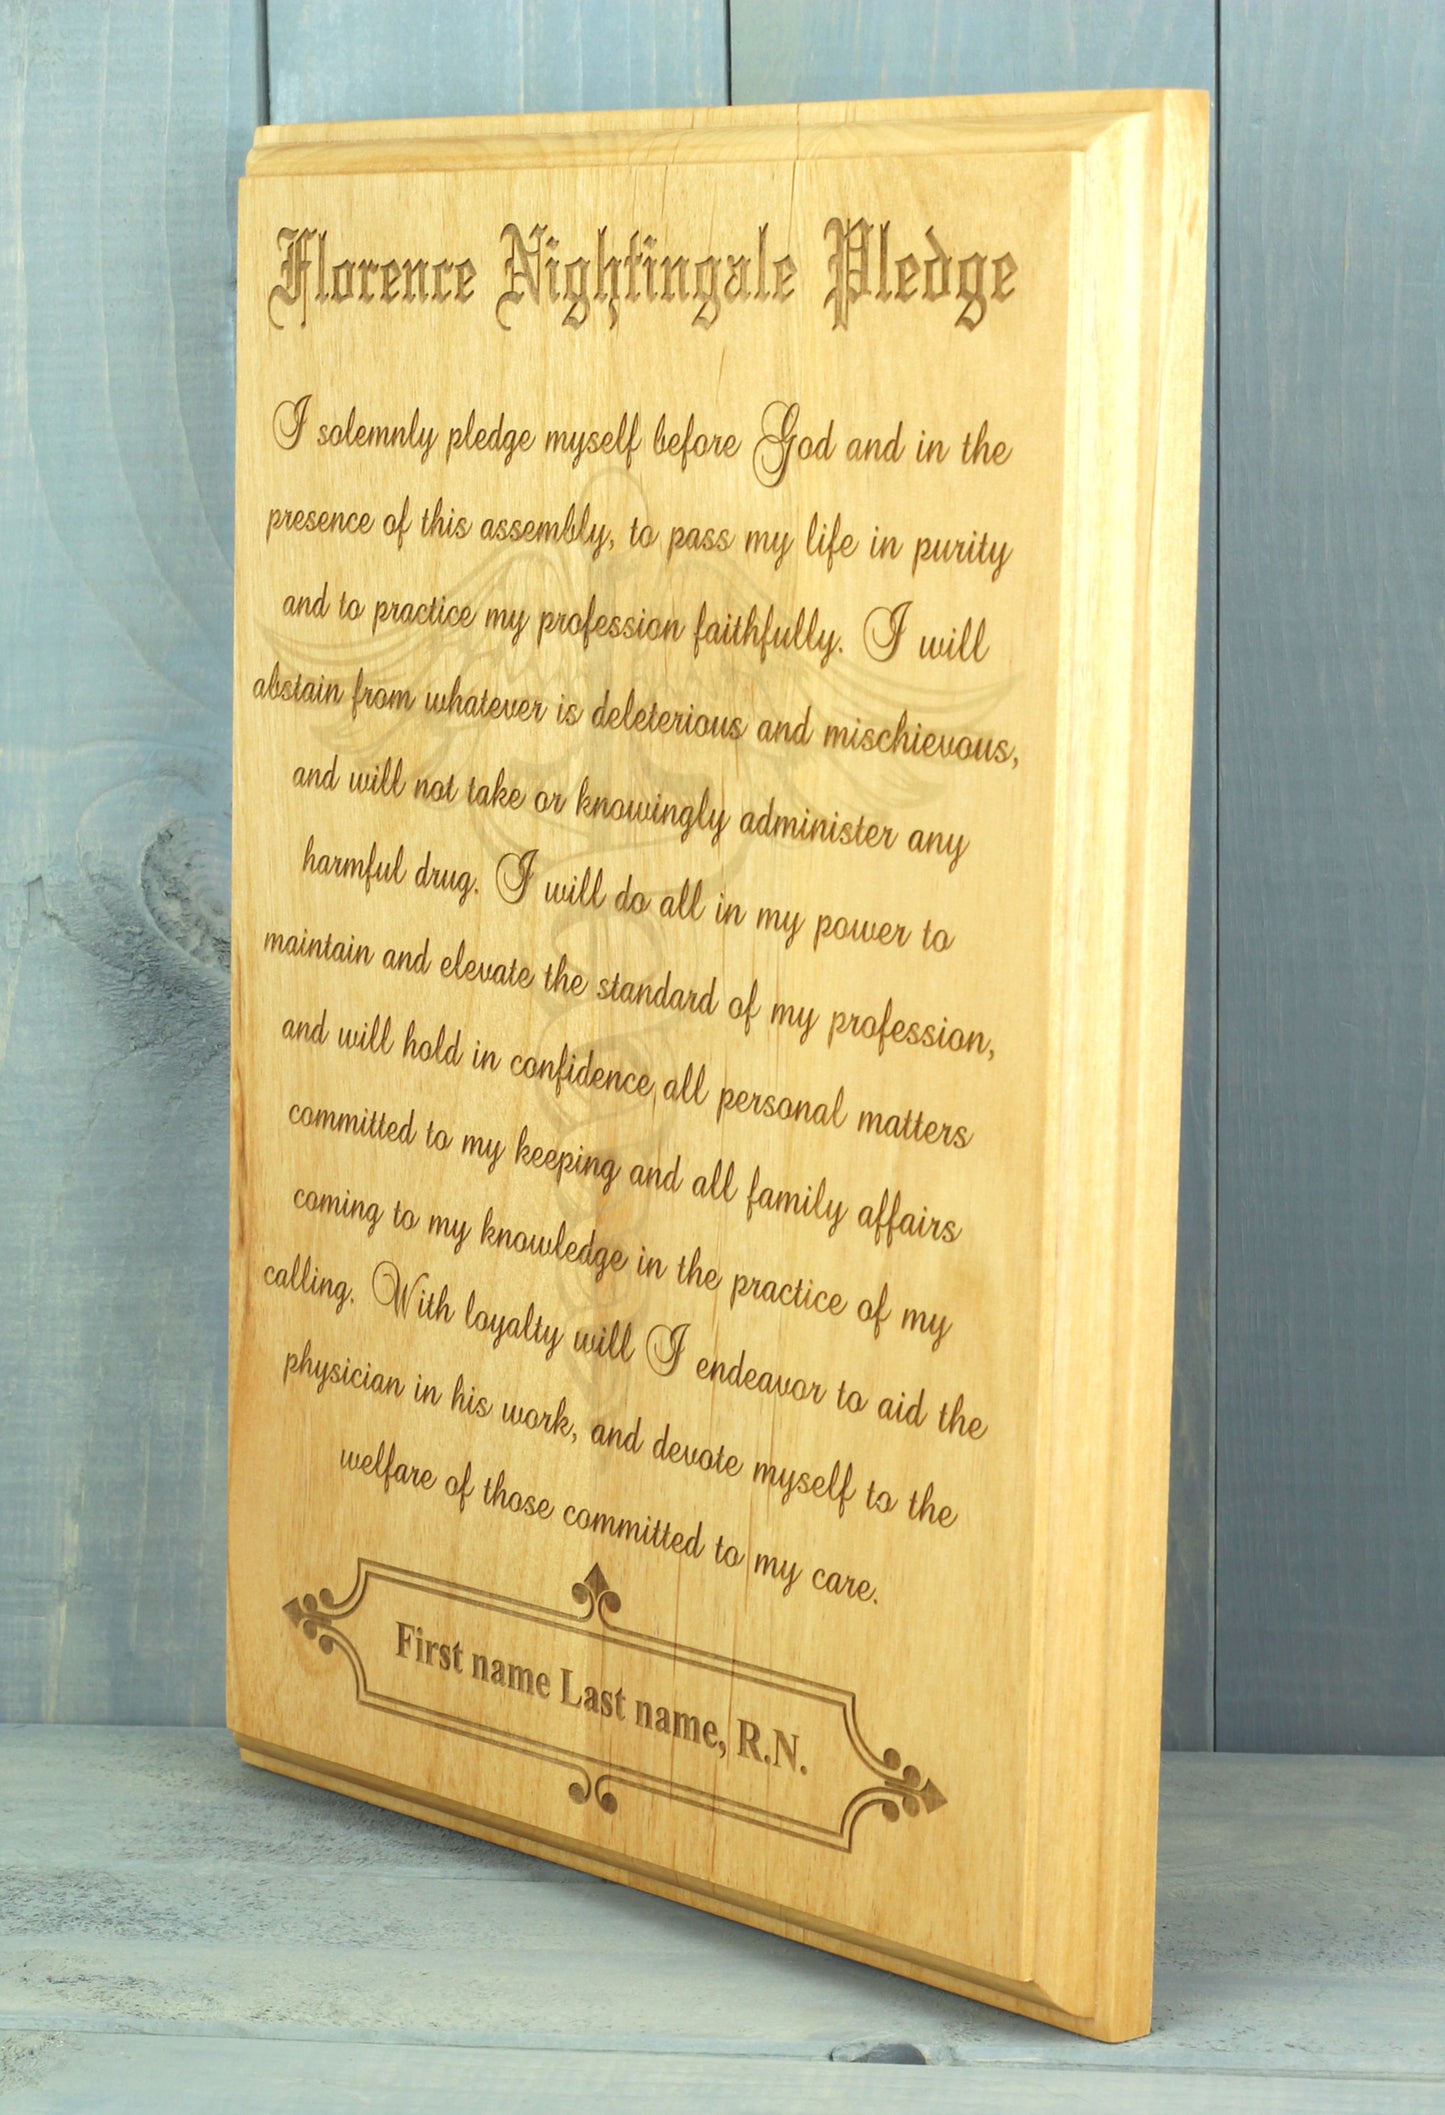 Florence Nightingale Pledge
I solemnly pledge myself before God and in the
presence of this assembly, to pass my life in purity
and to practice my profession faithfully. I will
abstain from whatever is deleterious and mischievous,
and will not take or knowingly administer any
harmful drug. I will do all in my power to
maintain and elevate the standard of my profession,
and will hold in confidence all personal matters
committed to my keeping and all family affairs
coming to my knowledge in the practice of my
calling. With loyalty will I endeavor to aid the
physician in his work, and devote myself to the
welfare of those committed to my care.
First name Last name, R.N.